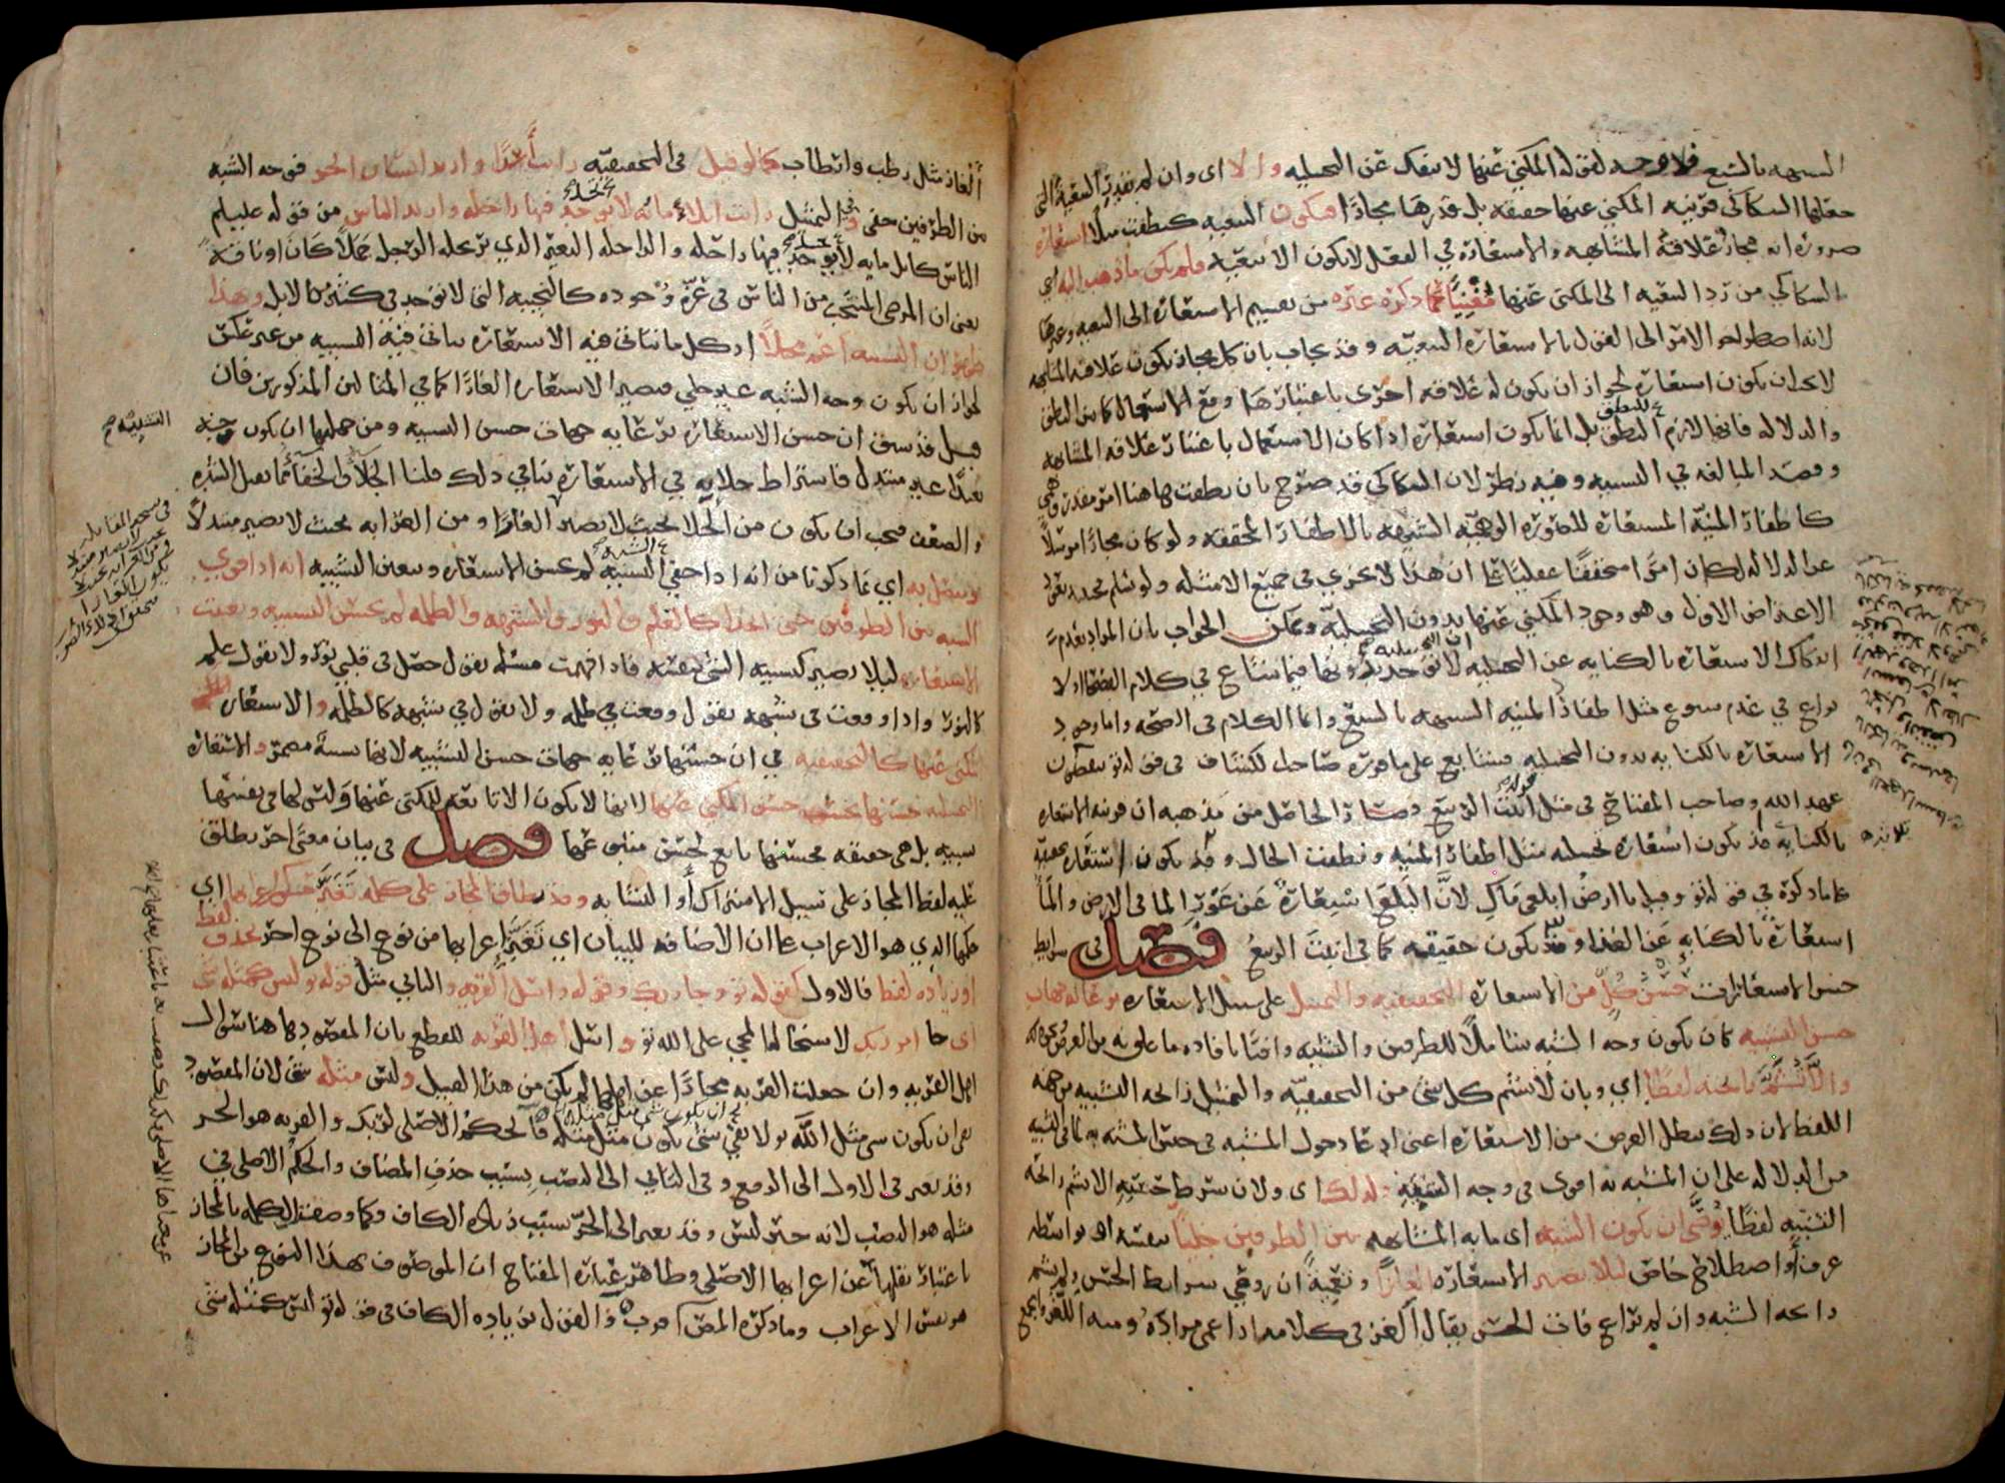 السبهه بالسبع فلا وجد لقوله المكني عنها لا ينفك عن التخييليه والا اى وان لم يقدر التبعية التي
جعلها السكاكى قرينه المكني عنها حقيقه بل قدرها مجازا فتكون التبعيه كنطقت مثلا استعارة
ضرورة انه مجاز علاقته المشابهه والاستعارة في الفعل لا يكون الا تبعيه فلم يكن ما ذهب اليه اي
السكاكي من رد التبعيه الى المكنى عنها مغنيا عما ذكره غيره من تقسيم الاستعارة الى التبعيه وغيرها
لانه اضطر اخر الامر الى القول بالاستعارة التبعيه وقد يجاب بان كل مجاز يكون علاقته المشابهه
لا يجب ان يكون استعارة لجواز ان يكون له علاقه اخرى باعتبارها وقع الاستعمال كما بين النطق
والدلاله فانها لازم النطق بل انما يكون استعارة اذا كان الاستعمال باعتبار علاقه المشابهه
وقصد المبالغه في التشبيه وفيه نظر لان السكاكي قد صرح بان نطقت هاهنا امر مقدر وهمي
كاظفار المنيه المستعارة للصورة الوهميه الشبيهه بالاظفار المحققه ولو كان مجازا مرسلا
عن الدلاله لكان امرا محققا عقليا على ان هذا لا يجري في جميع الامثله ولو سلم فحينئذ يعود
الاعتراض الاول وهو وجود المكني عنها بدون التخييليه ويمكن الجواب بان المراد بعدم
انفكاك الاستعارة بالكنايه عن التخييليه ان التخييليه لا توجد بدونها فيما شاع في كلام الفصحا اذ لا
نزاع في عدم شيوع مثل اظفار المنيه الشبيهه بالسبع وانما الكلام في الصحه واما وجود
الاستعارة بالكنايه بدون التخييليه فشايع على ما قرره صاحب الكشاف في قوله تعالى ينقضون
عهد الله وصاحب المفتاح في مثل انبت الربيع فصار الحاصل من مذهبه ان قرينه الاستعارة
بالكنايه قد يكون استعارة تخييليه مثل اظفار المنيه ونطقت الحال وقد يكون استعارة تحقيقيه
على ما ذكره في قوله تعالى وقيل يا ارض ابلعي ماك لان البلع استعارة عن غور الما في الارض والما
استعارة بالكنايه عن الغذا وقد يكون حقيقه كما في انبت الربيع فصل في شرايط
حسن الاستعارات حسن كل من الاستعارة التحقيقيه والتمثيل على سبيل الاستعارة برعايه جهات
حسن التشبيه كان يكون وجه الشبه شاملا للطرفين والتشبيه وافيا بافاده ما علق به من الغرض ونحو ذلك
والا تشم رايحته لفظا اي وبان لا يشم كل شي من التحقيقيه والتمثيل رايحه التشبيه من جهه
اللفظ لان ذلك يبطل الغرض من الاستعارة اعني ادعا دخول المشبه في جنس المشبه به لما في التشبيه
من الدلاله على ان المشبه به اقوى في وجه الشبه ولذلك اى ولان شرط حسنه الا يشم رايحه
التشبيه لفظا يوصى ان يكون الشبه اى ما به المشابهه بين الطرفين جليا بنفسه او بواسطه
عرف او اصطلاح خاص ليلا يصير الاستعارة الغازا وتعميه ان روعي شرايط الحسن ولم يشم
رايحه الشبه وان لم تراع فات الحسن يقال الغز في كلامه اذا عمى مراده ومنه اللغز والجمع
الغاز مثل رطب وارطاب كما لو قيل في التحقيقيه رايت اسدا واريد انسان ابخر فوجه الشبه
بين الطرفين خفي وفي التمثيل رايت ابلا مايه لا توجد فيها راحله واريد الناس من قوله عليه السلم
الناس كابل مايه لا توجد فيها راحله والراحله البعير الذي يرتحله الرجل جملا كان او ناقه
يعني ان المرضي المنتخب من الناس في عزة وجوده كالنجيبه التي لا توجد في كثير من الابل وبهذا
ظهر ان التشبيه اعم محلا اذ كل ما يتاتى فيه الاستعارة يتاتى فيه التشبيه من غير عكس
لجواز ان يكون وجه الشبه غير جلي فيصير الاستعارة الغازا كما في المثالين المذكورين فان
قيل قد سبق ان حسن الاستعارة برعايه جهات حسن التشبيه ومن جملتها ان يكون وجه
بعيدا غير مبتذل فاشتراط جلايه في الاستعارة ينافي ذلك قلنا الجلا والخفا مما يقبل الشده
والضعف فيجب ان يكون من الجلا بحيث لا يصير الغازا ومن الغرابه بحيث لا يصير مبتذلا
ويتصل به اي بما ذكرنا من انه اذا خفي الشبه لم يحسن الاستعاره ويتعين التشبيه انه اذا قوي
الشبه بين الطرفين حتى اتحدا كالعلم والنور والشبهه والظلمه لم يحسن التشبيه وتعينت
الاستعاره ليلا يصير كتشبيه الشي بنفسه فاذا فهمت مسئله تقول حصل في قلبي نور ولا تقول علم
كالنور واذا وقعت في شبهه تقول وقعت في ظلمه ولا تقول في شبهه كالظلمه والاستعاره
المكنى عنها كالتحقيقيه في ان حسنها برعايه جهات حسن التشبيه لانها تشبيه مضمر والاستعارة
التخييليه حسنها بحسب حسن المكني عنها لانها لا يكون الا تابعه للمكنى عنها وليس لها في نفسها
تشبيه بل هي حقيقه فحسنها تابع لحسن متبوعها فصل في بيان معنى اخر يطلق
عليه لفظ المجاز على سبيل الاشتراك او التشابه وقد يطلق المجاز على كلمه تغير حكم اعرابها اي
حكمها الذي هو الاعراب على ان الاضافه للبيان اي تغير اعرابها من نوع الى نوع اخر بحذف لفظ
او زياده لفظ فالاول كقوله تعالى وجا ربك وقوله واسئل القريه والثاني مثل قوله ليس كمثله شي
اى جا امر ربك لاستحاله المجي على الله تعالى واسئل اهل القريه للقطع بان المقصود هاهنا سوال
اهل القريه وان جعلت القريه مجازا عن اهلها لم يكن من هذا القبيل وليس مثله شي لان المقصود
نفي ان يكون شي مثل الله تعالى لا نفي ان يكون شي مثل مثله فالحكم الاصلي لربك والقريه هو الجر
وقد تغير في الاول الى الرفع وفي الثاني الى النصب بسبب حذف المضاف والحكم الاصلي في
مثله هو النصب لانه خبر ليس وقد تغير الى الجر بسبب زيادة الكاف وكما وصفت الكلمه بالمجاز
باعتبار نقلها عن اعرابها الاصلي وظاهر عبارة المفتاح ان الموصوف بهذا النوع من المجاز
هو نفس الاعراب وما ذكره المصنف اقرب والقول بزيادة الكاف في قوله تعالى ليس كمثله شي